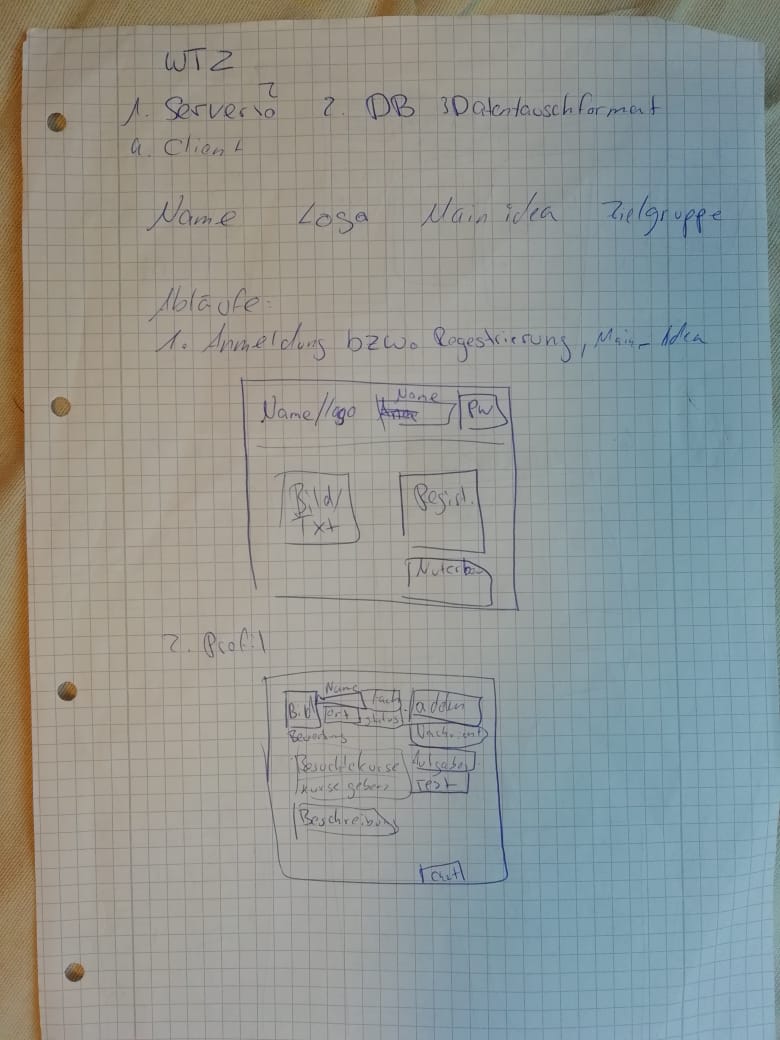 WTZ
1. Server 2. DB 3Datentauschformat
4. Client
Name Logo Main idea Zielgruppe
Abläufe:
1. Anmeldung bzw. Regestrierung, Main-Idea
Name/logo Name PW
Bild/ Regist.
Txt
2. Profil
Name
Bild Ort Fach adden
Status
Bewertung
Besuchte kurse Aufgaben
kurse geben Test
Beschreibung